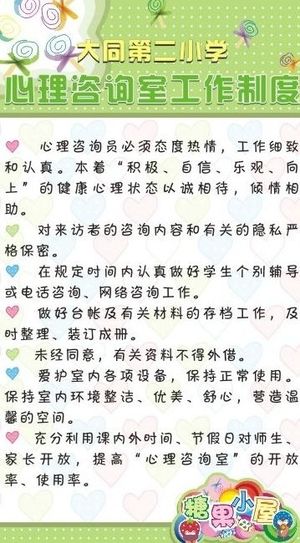 大同第二小学
心理咨询室工作制度
心理咨询员必须态度热情，工作细致
和认真。本着“积极、自信、乐观、向
上”的健康心理状态以诚相待，倾情相
助。
对来访者的咨询内容和有关的隐私严
格保密。
在规定时间内认真做好学生个别辅导
或电话咨询、网络咨询工作。
做好台帐及有关材料的存档工作，及
时整理、装订成册。
未经同意，有关资料不得外借。
爱护室内各项设备，保持正常使用。
保持室内环境整洁、优美、舒心，营造温
馨的空间。
充分利用课内外时间、节假日对师生、
家长开放，提高“心理咨询室”的开放
率、使用率。
糖果小屋